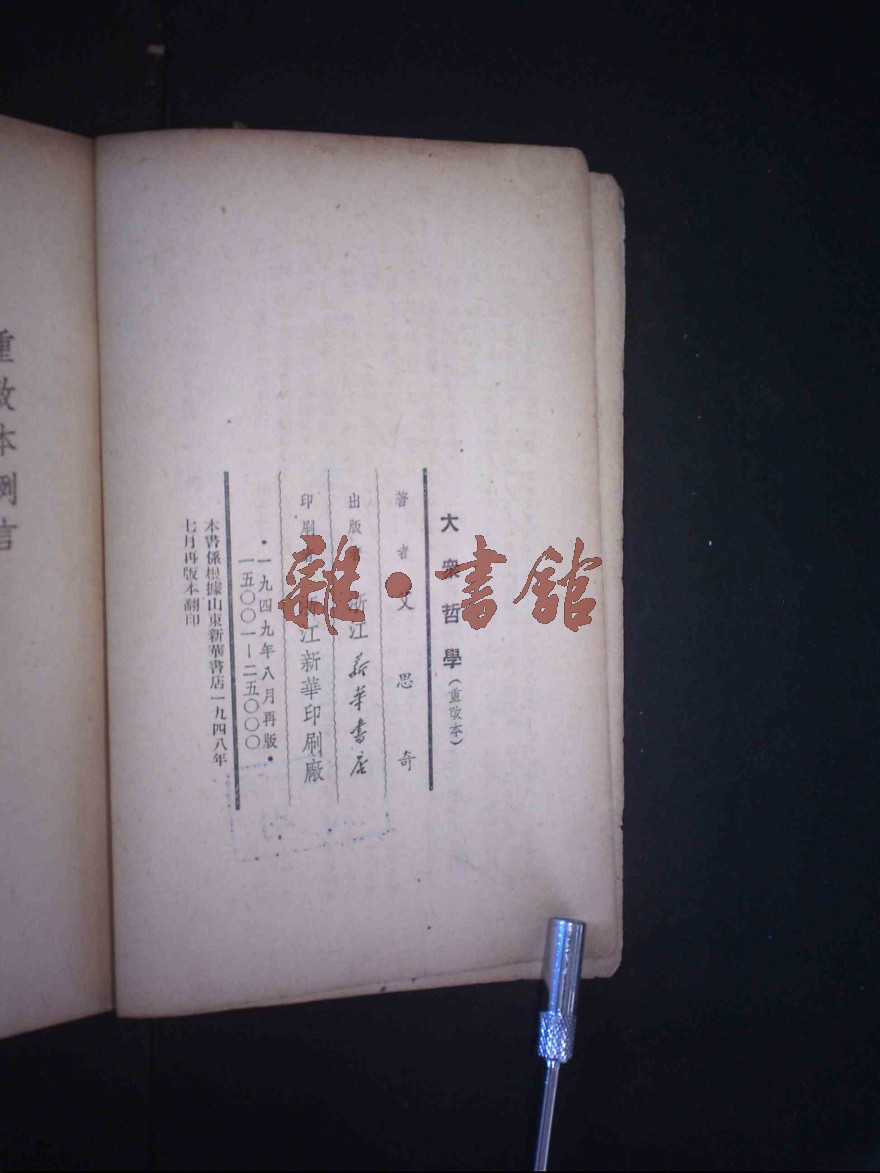 大衆哲學(重改本)
著者 艾思奇
出版者 浙江新華書店
印刷者 浙江新華印刷廠
•一九四九年八月再版•
一五〇〇一—二五〇〇〇
本書係根據山東新華書店一九四八年
七月再版本翻印
重改本例言
雜•書館